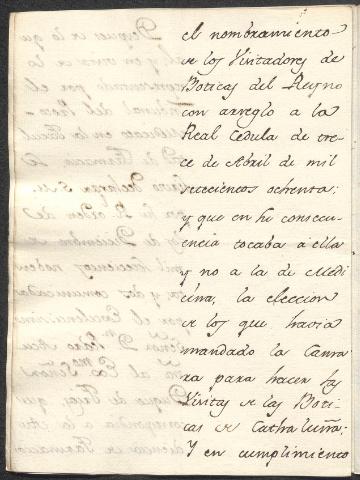 el nombramiento
de los Visitadores de
Boticas del Reyno
con arreglo a la
Real Cedula de tre-
ce de Abril de mil
setecientos ochenta;
y que en su consecu-
encia tocaba a ella
y no a la de Medi
cina, la eleccion
de los que havia
mandado la Cama
ra para hacer las
Visitas de las Boti
cas de Cathaluña;
Y en cumplimiento